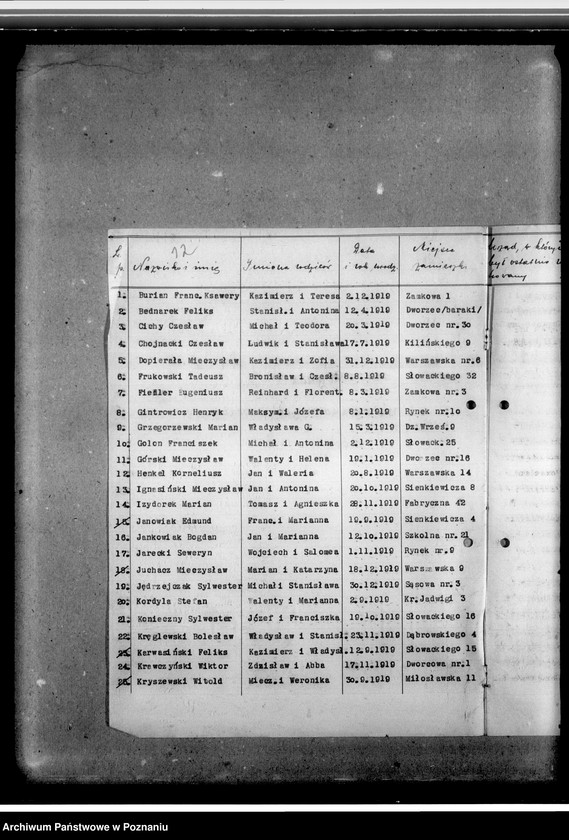 12
L. p. Nazwisko i imię Imiona rodziców Data i rok urodz. Miejsce zamieszk.
1. Burian Franc.Ksawery Kazimierz i Teresa 2.12.1919 Zamkowa 1
2. Bednarek Feliks Stanisł.i Antonina 12.4.1919 Dworzec/baraki/
3. Cichy Czesław Michał i Teodora 20.3.1919 Dworzec nr.30
4. Chojnacki Czesław Ludwik i Stanisława 17.7.1919 Kilińskiego 9
5. Dopierała Mieczysław Kazimierz i Zofia 31.12.1919 Warszawska nr.6
6. Frukowski Tadeusz Bronisław i Czesł. 8.8.1919 Słowackiego 32
7. Fiedler Eugeniusz Reinhard i Florent. 8.3.1919 Zamkowa nr.3
8. Gintrowicz Henryk Maksym.i Józefa 8.1.1919 Rynek nr.10
9. Grzegorzewski Marian Władysława G. 15.3.1919 Dz.Wrześ.9
10. Golon Franciszek Michał i Antonina 2.12.1919 Słowack.25
11. Górski Mieczysław Walenty i Helena 19.1.1919 Dworzec nr.16
12. Henkel Korneliusz Jan i Waleria 20.8.1919 Warszawska 14
13. Ignasiński Mieczysław Jan i Antonina 20.10.1919 Sienkiewicza 8
14. Izydorek Marian Tomasz i Agnieszka 28.11.1919 Fabryczna 42
15. Janowiak Edmund Franc.i Marianna 19.9.1919 Sienkiewicza 4
16. Jankowiak Bogdan Jan i Marianna 12.10.1919 Szkolna nr.21
17. Jarecki Seweryn Wojciech i Salomea 1.11.1919 Rynek nr.9
18. Juchacz Mieczysław Marian i Katarzyna 18.12.1919 Warszawska 9
19. Jędrzejczak Sylwester Michał i Stanisława 30.12.1919 Sądowa nr.3
20. Kordyla Stefan Walenty i Marianna 2.9.1919 Kr.Jadwigi 3
21. Konieczny Sylwester Józef i Franciszka 19.10.1919 Słowackiego 16
22. Kręglewski Bolesław Władysław i Stanisł. 23.11.1919 Dąbrowskiego 4
23. Karwasiński Feliks Kazimierz i Władysł. 12.9.1919 Słowackiego 15
24. Krawczyński Wiktor Zdzisław i Abba 17.11.1919 Dworcowa nr.1
25. Kryszewski Witold Miecz.i Weronika 30.9.1919 Miłosławska 11
Archiwum Państwowe w Poznaniu